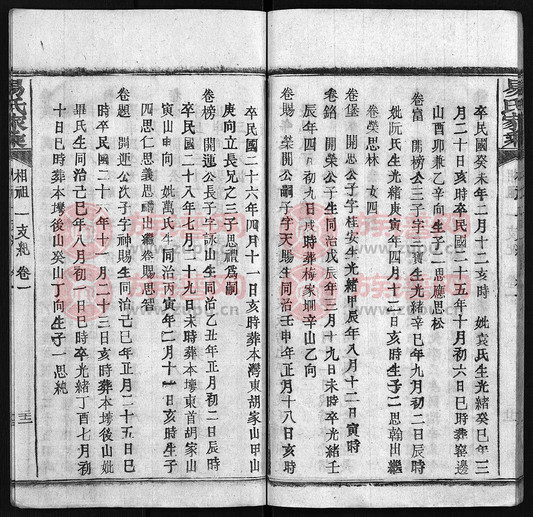 卒民國癸未年二月十二亥時　妣袁氏生光緒癸巳年三
月二十日亥時卒民國二十五年十月初六日巳時葬窰邊
山酉卯兼乙辛向生子二思應思松
卷富　開榜公三子字二寶生光緒辛巳年九月初二日辰時
妣阮氏生光緒庚寅年四月十二日亥時生子二思翰出繼
卷榮思林　女四
卷堡　開思公子字桂安生光緒甲辰年八月十二日寅時
卷銘　開榮公子字同治戊辰年三月十九日未時卒光緒壬
辰年四月初九日戌時葬梅家壩辛山乙向
卷賜　榮開公嗣子字天賜生同治壬申年正月十八日亥時
卒民國二十六年四月十一日亥時葬本灣東胡家山甲山
庚向立長兄之三子思禮爲嗣
卷榜　開運公長子字詠山生同治乙丑年正月初二日辰時
卒民國二十八年七月二十九日未時葬本塆東首胡家山
寅山申向　妣萬氏生同治丙寅年二月十一日亥時生子
四思仁思義思禮出繼卷賜思智
卷題　開運公次子字神賜生同治己巳年正月二十五日巳
時卒民國二十八年十一月二十三日亥時葬本塆後山妣
畢氏生同治己巳年八月初一日巳時卒光緒丁酉七月初
十日巳時葬本塆後山癸山丁向生子一思純
易氏家乘
相祖一支紀　卷一